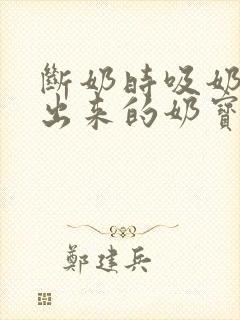 斷奶時吸奶
出来的奶寶
鄭建兵